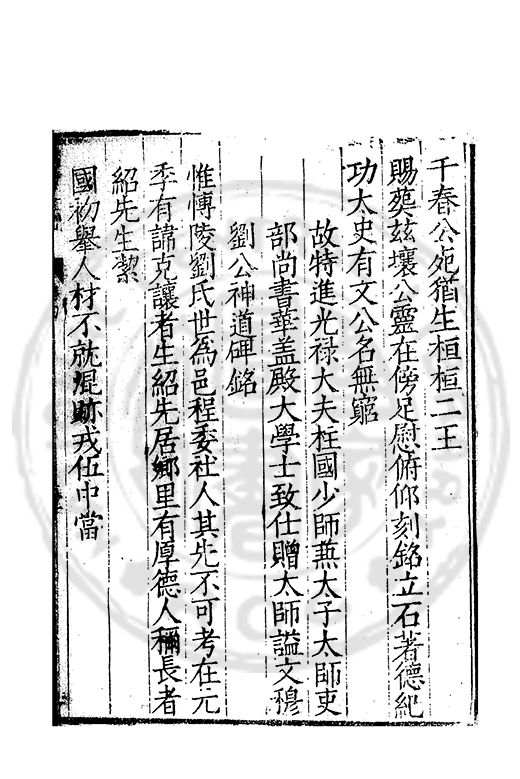 千春公宛猶生桓桓二王
賜葬兹壤公靈在傍足慰俯仰刻銘立石著德紀
功太史有文公名無窮
故特進光禄大夫柱國少師兼太子太師吏
部尚書華盖殿大學士致仕贈太師謚文穆
劉公神道碑銘
惟博陵劉氏世為邑程委社人其先不可考在元
季有諱克讓者生紹先居鄉里有厚德人稱長者
紹先生潔
國初舉人材不就混跡戎伍中當